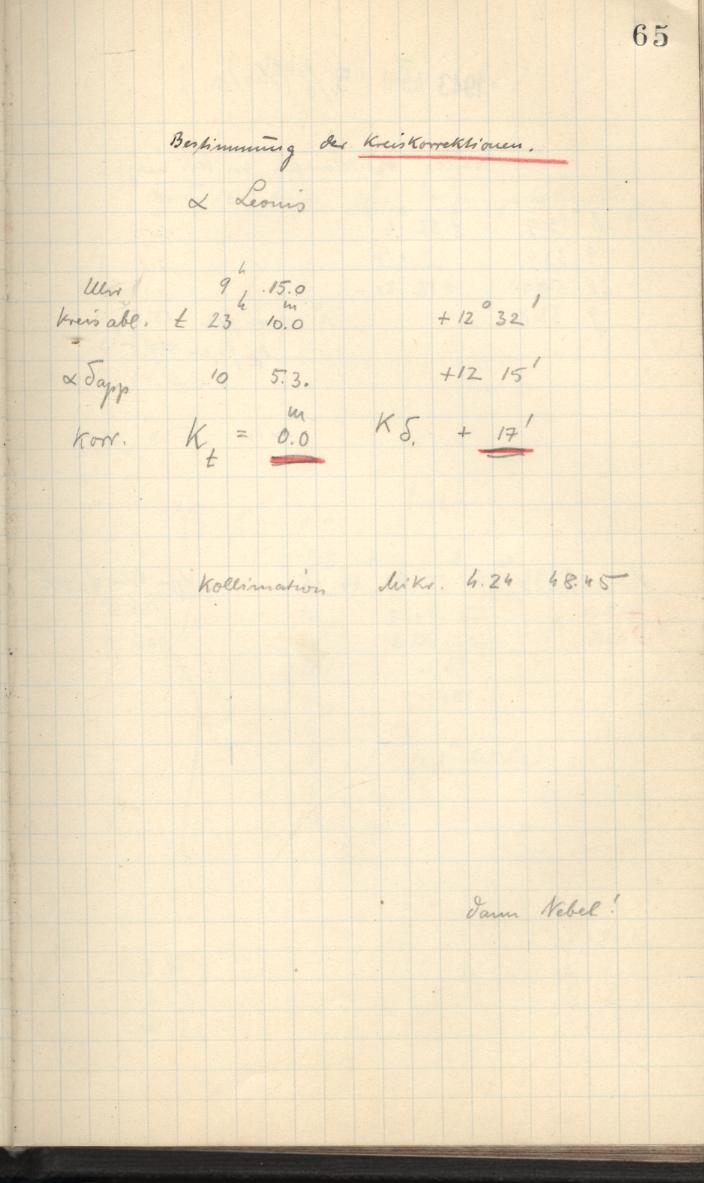 65
Bestimmung der Kreiskorrektionen.
α Leonis
Uhr 9h 15.0
Kreisabl. t 23h 10.0m +12° 32'
α δapp 10 5.3. +12 15'
Korr. Kt = 0.0m Kδ. + 17'
Kollimation Mikr. 4.24 48.45
dann Nebel!